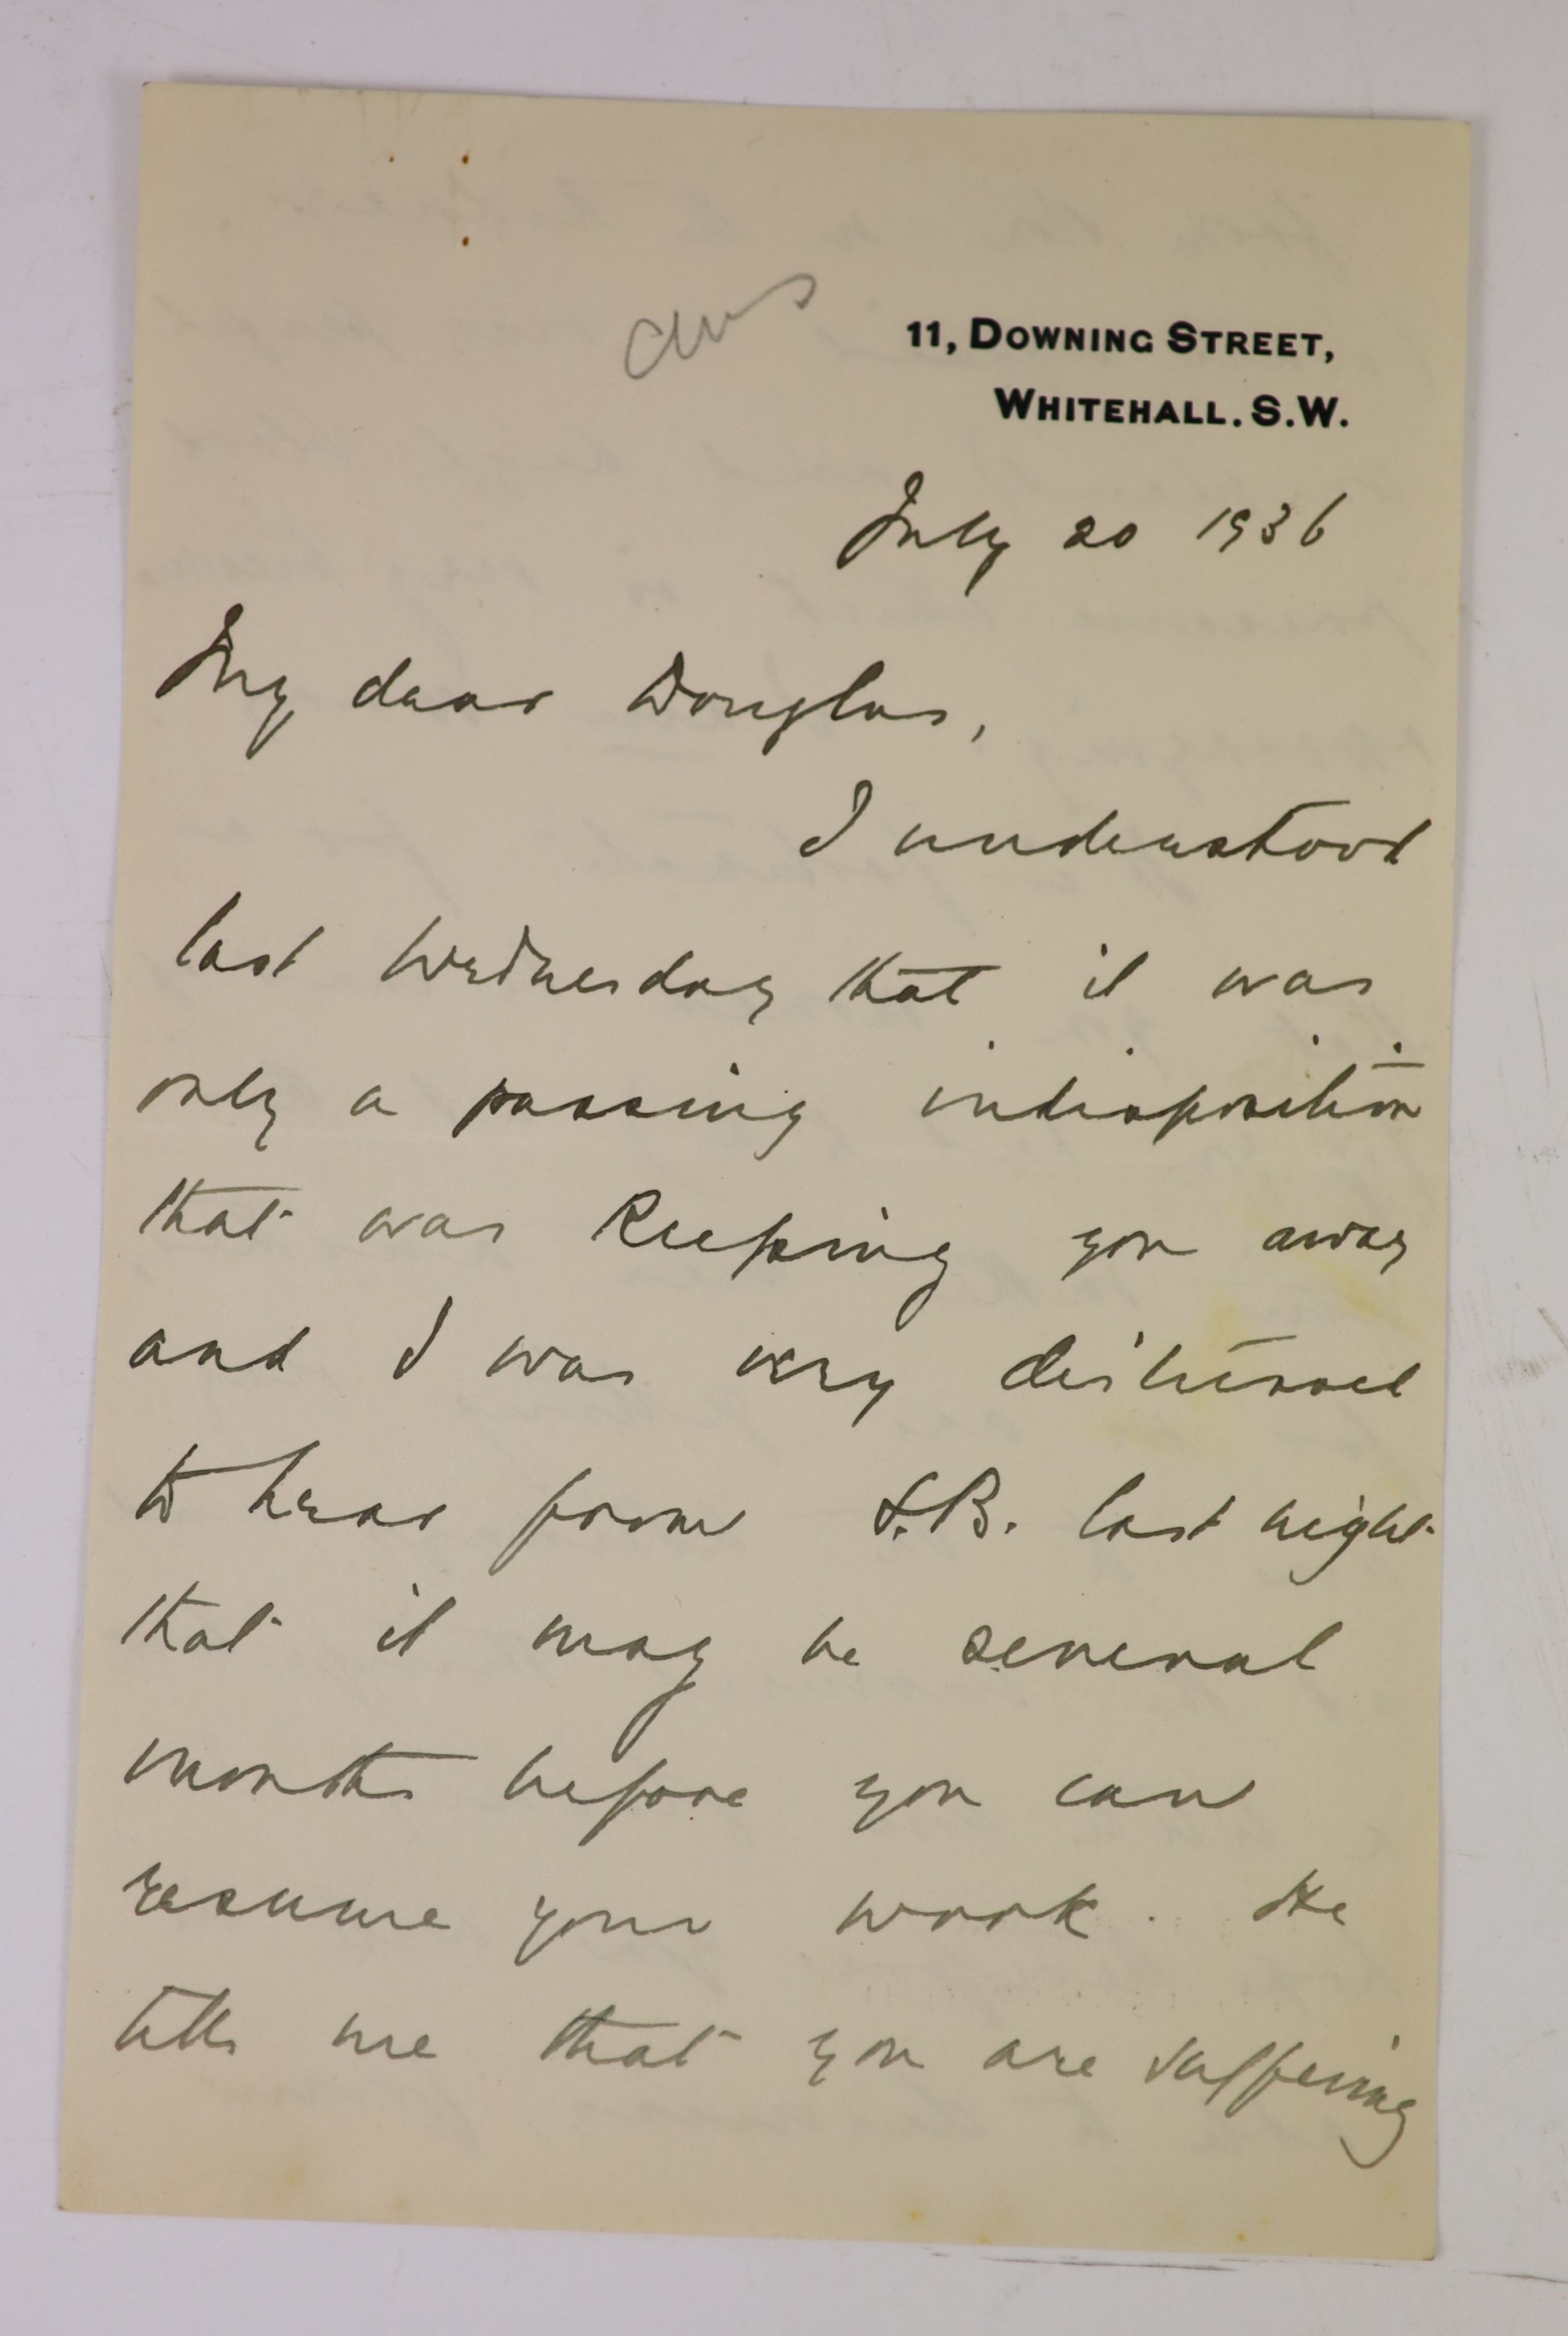 ans
11, DOWNING STREET,
WHITEHALL. S.W.
July 20 1936
My dear Douglas,
I understood
last Wednesday that it was
only a passing indisposition
that was keeping you away
and I was very distressed
to hear from S.B. last night
that it may be several
months before you can
resume your work. He
tells me that you are suffering